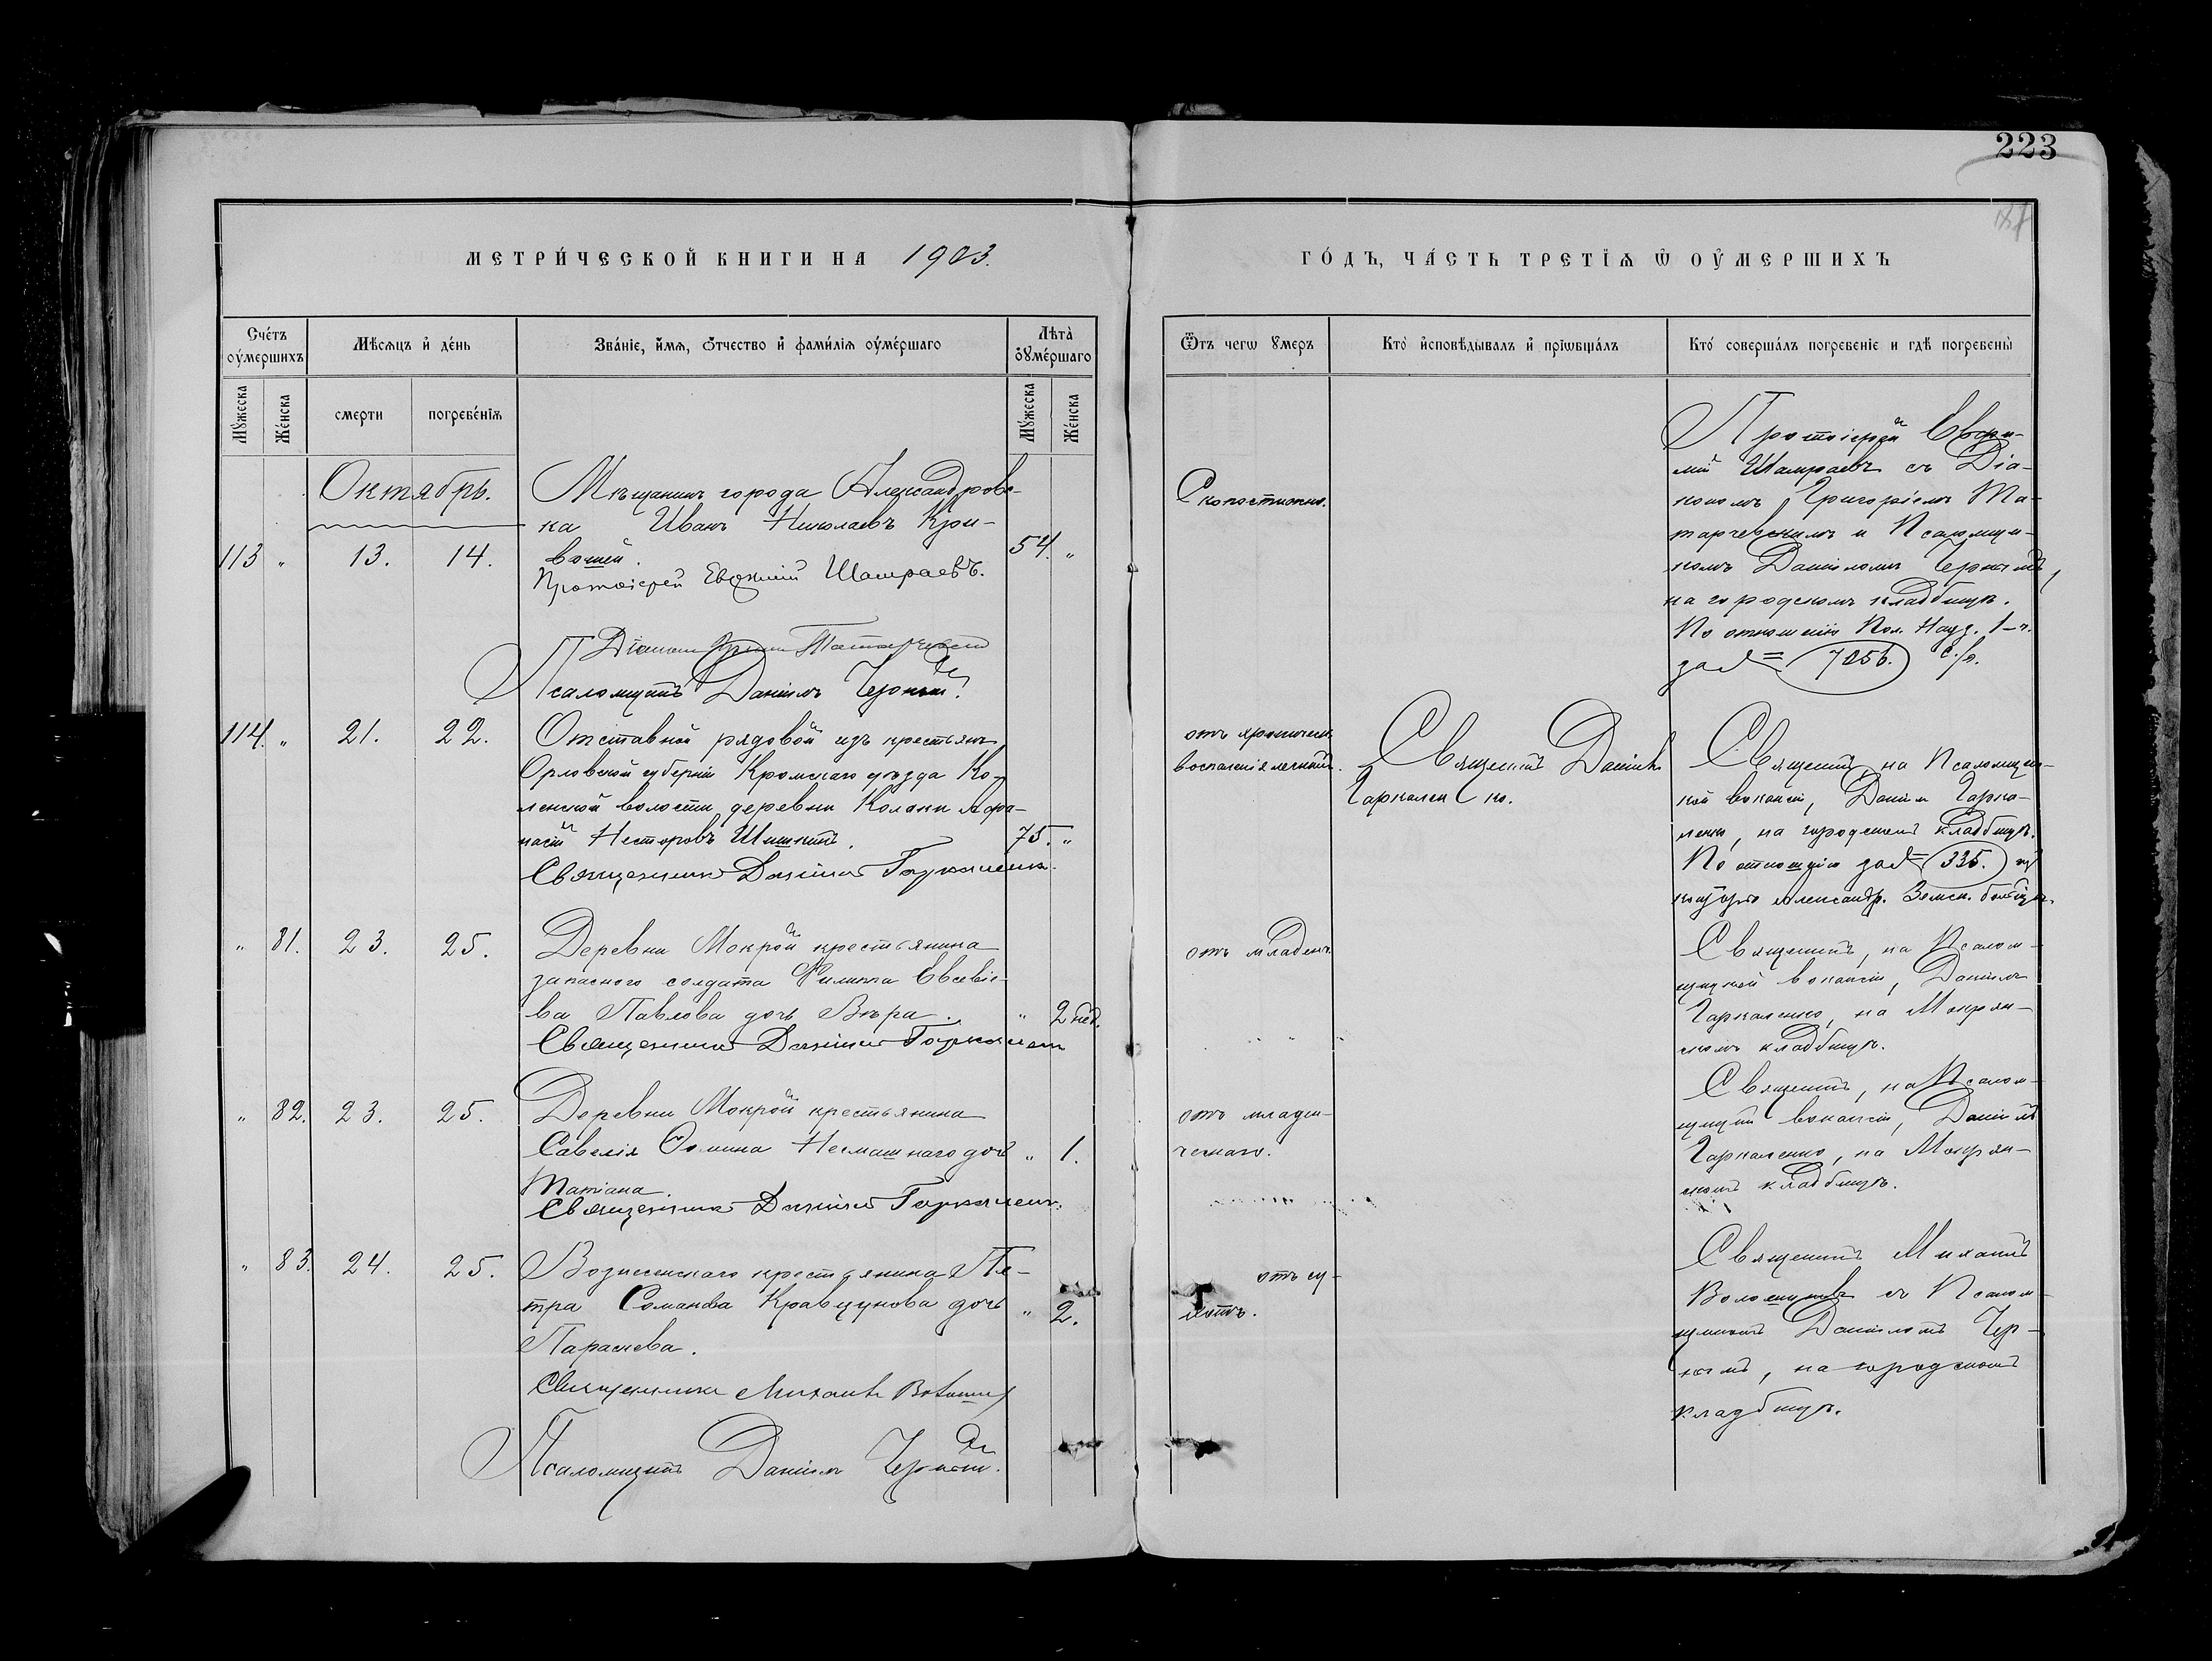 223
МЕТРИ́ЧЕСКОЙ КНИГИ НА 1903.
ГО́ДЪ, ЧА́СТЬ ТРЕТІѦ Ѿ ОУ҆МЕРШИХЪ
Сче́тъ оу҆ме́ршихъ
Мѣ́сѧцъ и҆ де́нь
Зва́нїе, и҆́мѧ, ѻ҆́тчество и҆ фами́лїѧ оу҆ме́ршаго
Лѣ́та оу҆ме́ршаго
Ѿъ чегѡ ᲂумеръ
Кто̀ и҆сповѣ́дывалъ и҆ прїѡбща́лъ
Кто́ соверша́лъ погребе́нїе и гдѣ̀ погребены̀
Му́жеска
Же́нска
смерти
погребе́нїѧ
Му́жеска
Же́нска
Октябрь.
113 " 13. 14.
Мѣщанинъ города Александровс-
ка Иванъ Николаевъ Кри-
вошей.
54. "
Протоіерей Евѳимій Шамраевъ.
Псаломщикъ Даніилъ Черный.
Скоропостижно.
Протоіерей Евѳи-
мій Шамраевъ съ Діа-
кономъ Григоріемъ Та-
тарчевскимъ и Псаломщи-
комъ Даніиломъ Чернымъ,
на городскомъ кладбищѣ.
По отношенію Пол. Надз. 1-ч.
за № 7056. с./г.
114. " 21. 22.
Отставной рядовой изъ крестьянъ
Орловской губерніи Кромскаго уѣзда Ко-
ленской волости деревни Колоки Афа-
насій Несторовъ Шишкинъ.
75. "
Священникъ Даніилъ Гаркаленко.
отъ хроническ.
воспаленія легкихъ.
Священникъ Даніилъ
Гаркаленко.
Священникъ, на Псаломщиц-
кой вакансіи, Даніилъ Гарка-
ленко, на городскомъ кладбищѣ.
По отношенію за № 335. изъ
конторы Александр. Земск. больницы.
" 81. 23. 25.
Деревни Мокрой крестьянина
запаснаго солдата Филиппа Евсевіе-
ва Павлова дочь Вѣра.
" 2 нед.
Священникъ Даніилъ Гаркаленко
отъ младенч.
Священникъ, на Псалом-
щицкой вакансіи, Даніилъ
Гаркаленко, на Мокрян-
скомъ кладбищѣ.
" 82. 23. 25.
Деревни Мокрой крестьянина
Савелія Ѳомина Несмашнаго дочь
Татіана.
" 1.
Священникъ Даніилъ Гаркаленко.
отъ младен-
ческаго.
Священникъ, на Псалом-
щицкой вакансіи, Даніилъ
Гаркаленко, на Мокрян-
скомъ кладбищѣ.
" 83. 24. 25.
Вознесенскаго крестьянина Пе-
тра Романова Кравцунова дочь
Параскева.
" 2.
Священникъ Михаилъ Волошинъ
Псаломщикъ Даніилъ Черный.
Священникъ Михаилъ
Волошиновъ съ Псалом-
щикомъ Даніиломъ Чер-
нымъ, на городскомъ
кладбищѣ.